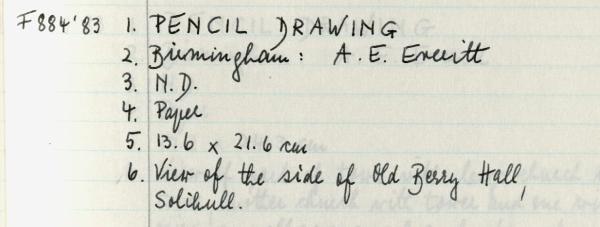 F884'83 1. PENCIL DRAWING
2. Birmingham: A. E. Everitt
3. N.D.
4. Paper
5. 13.6 x 21.6 cm
6. View of the side of Old Berry Hall,
Solihull.